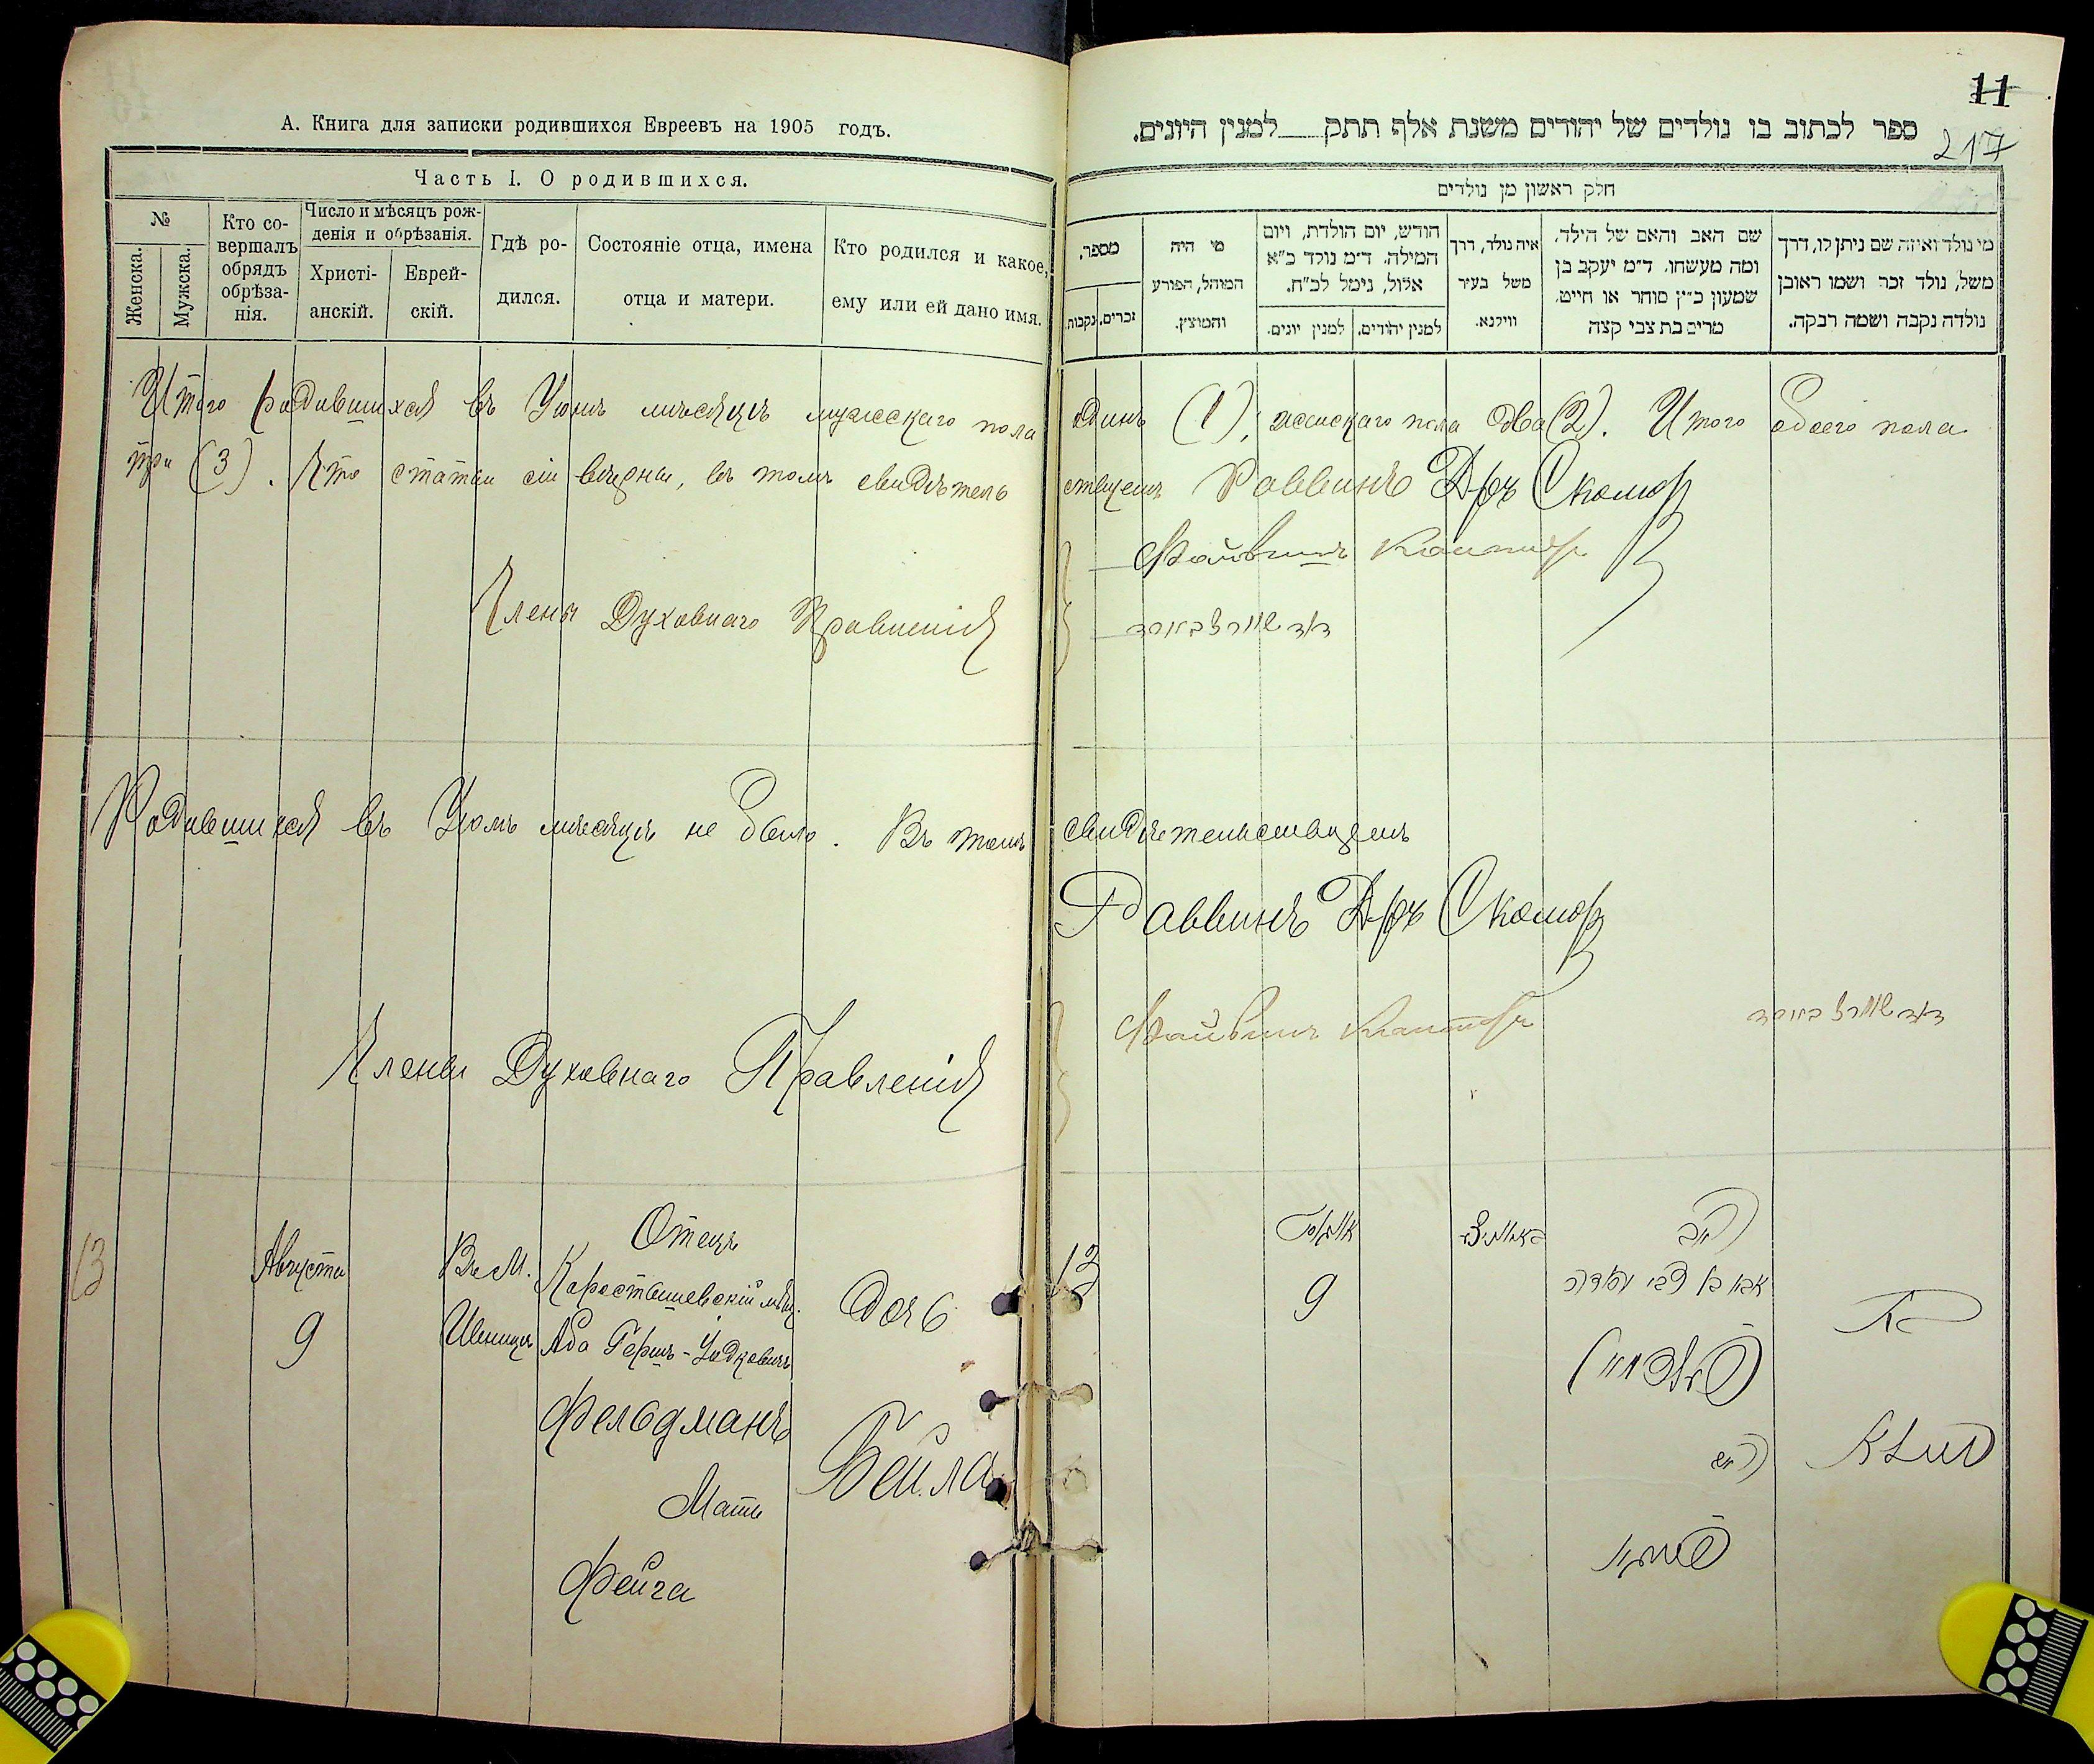 А. Книга для записки родившихся Евреевъ на 1905 годъ.
Часть I. О родившихся.
№
Женска.
Мужска.
Кто со-
вершалъ
обрядъ
обрѣза-
нія.
Число и мѣсяцъ рож-
денія и обрѣзанія.
Христі-
анскій.
Еврей-
скій.
Гдѣ ро-
дился.
Состояніе отца, имена
отца и матери.
Кто родился и какое,
ему или ей дано имя.
11
217
ספר לכתוב בו נולדים של יהודים משנת אלף תתק למנין היונים.
חלק ראשון מן נולדים
מספר.
זכרים.
נקבות.
מי היה
המוהל, הפורע
והמוצץ.
חודש, יום הולדת, ויום
המילה. ד״מ נולד כ״א
אלול, נימל לכ״ח.
למנין יהודים.
למנין יונים.
איה נולד, דרך
משל בעיר
ווילנא.
שם האב והאם של הילד.
ומה מעשהו. ד״מ יעקב בן
שמעון כ״ץ סוחר או חייט.
מרים בת צבי קצה
מי נולד ואיזה שם ניתן לו, דרך
משל, נולד זכר ושמו ראובן
נולדה נקבה ושמה רבקה.
Итого родившихся въ Іюнѣ мѣсяцѣ мужескаго пола одинъ (1), женскаго пола два (2). Итого обоего пола
три (3). Что статьи сіи вѣрны, въ томъ свидѣтельствуемъ Раввинъ Д-ръ Скомор
Члены Духовнаго Правленія
Родившихся въ Іюлѣ мѣсяцѣ не было. Въ томъ свидѣтельствуемъ
Раввинъ Д-ръ Скомор
Члены Духовнаго Правленія
13
Августа
9
Въ М.
Ивницѣ
Отецъ
Коростышевскій мѣщ.
Аба Гершъ-Іудковичъ
Фельдманъ
Мать
Фейга
Дочь
Бейла
13
אוגוסט
9
אבא בן צבי יודא
פעלדמאן
האם
פייגא
בת
ביילא